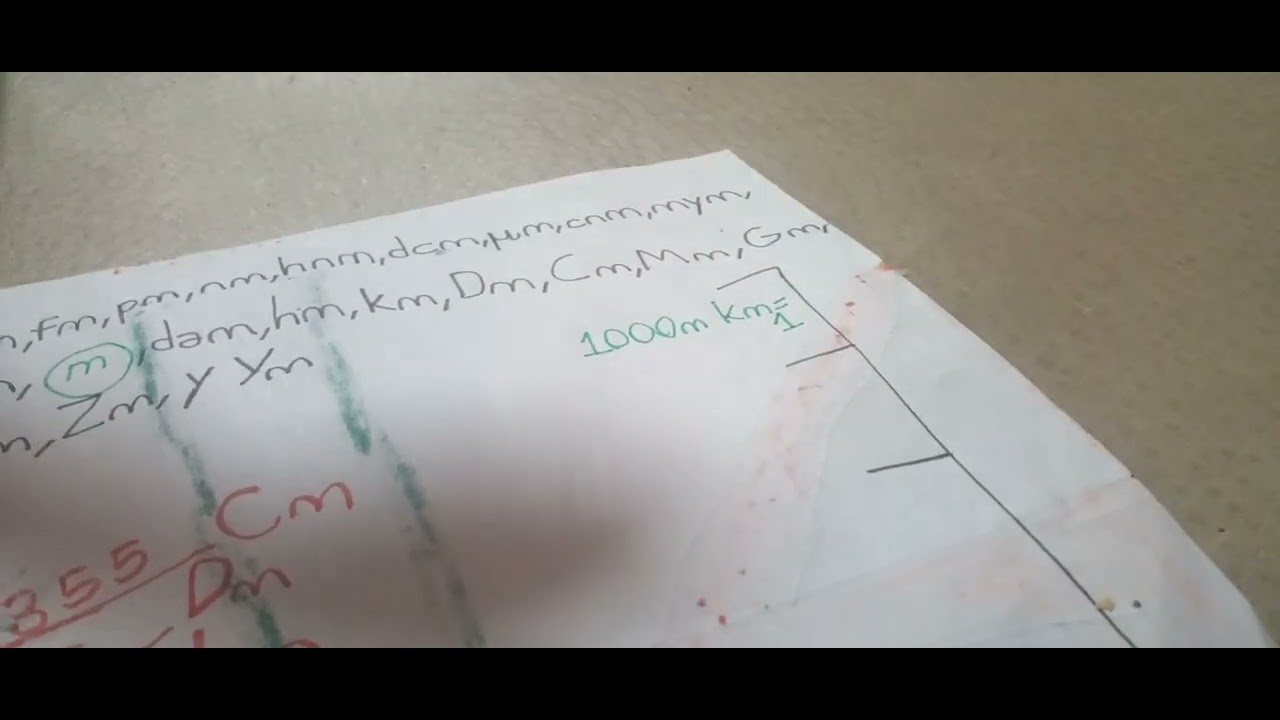 fm, pm, nm, hnm, dcm, µm, cnm, mym,
m, dam, hm, km, Dm, Cm, Mm, Gm,
Zm, y Ym
1000m km=
1
Cm
355
Dm